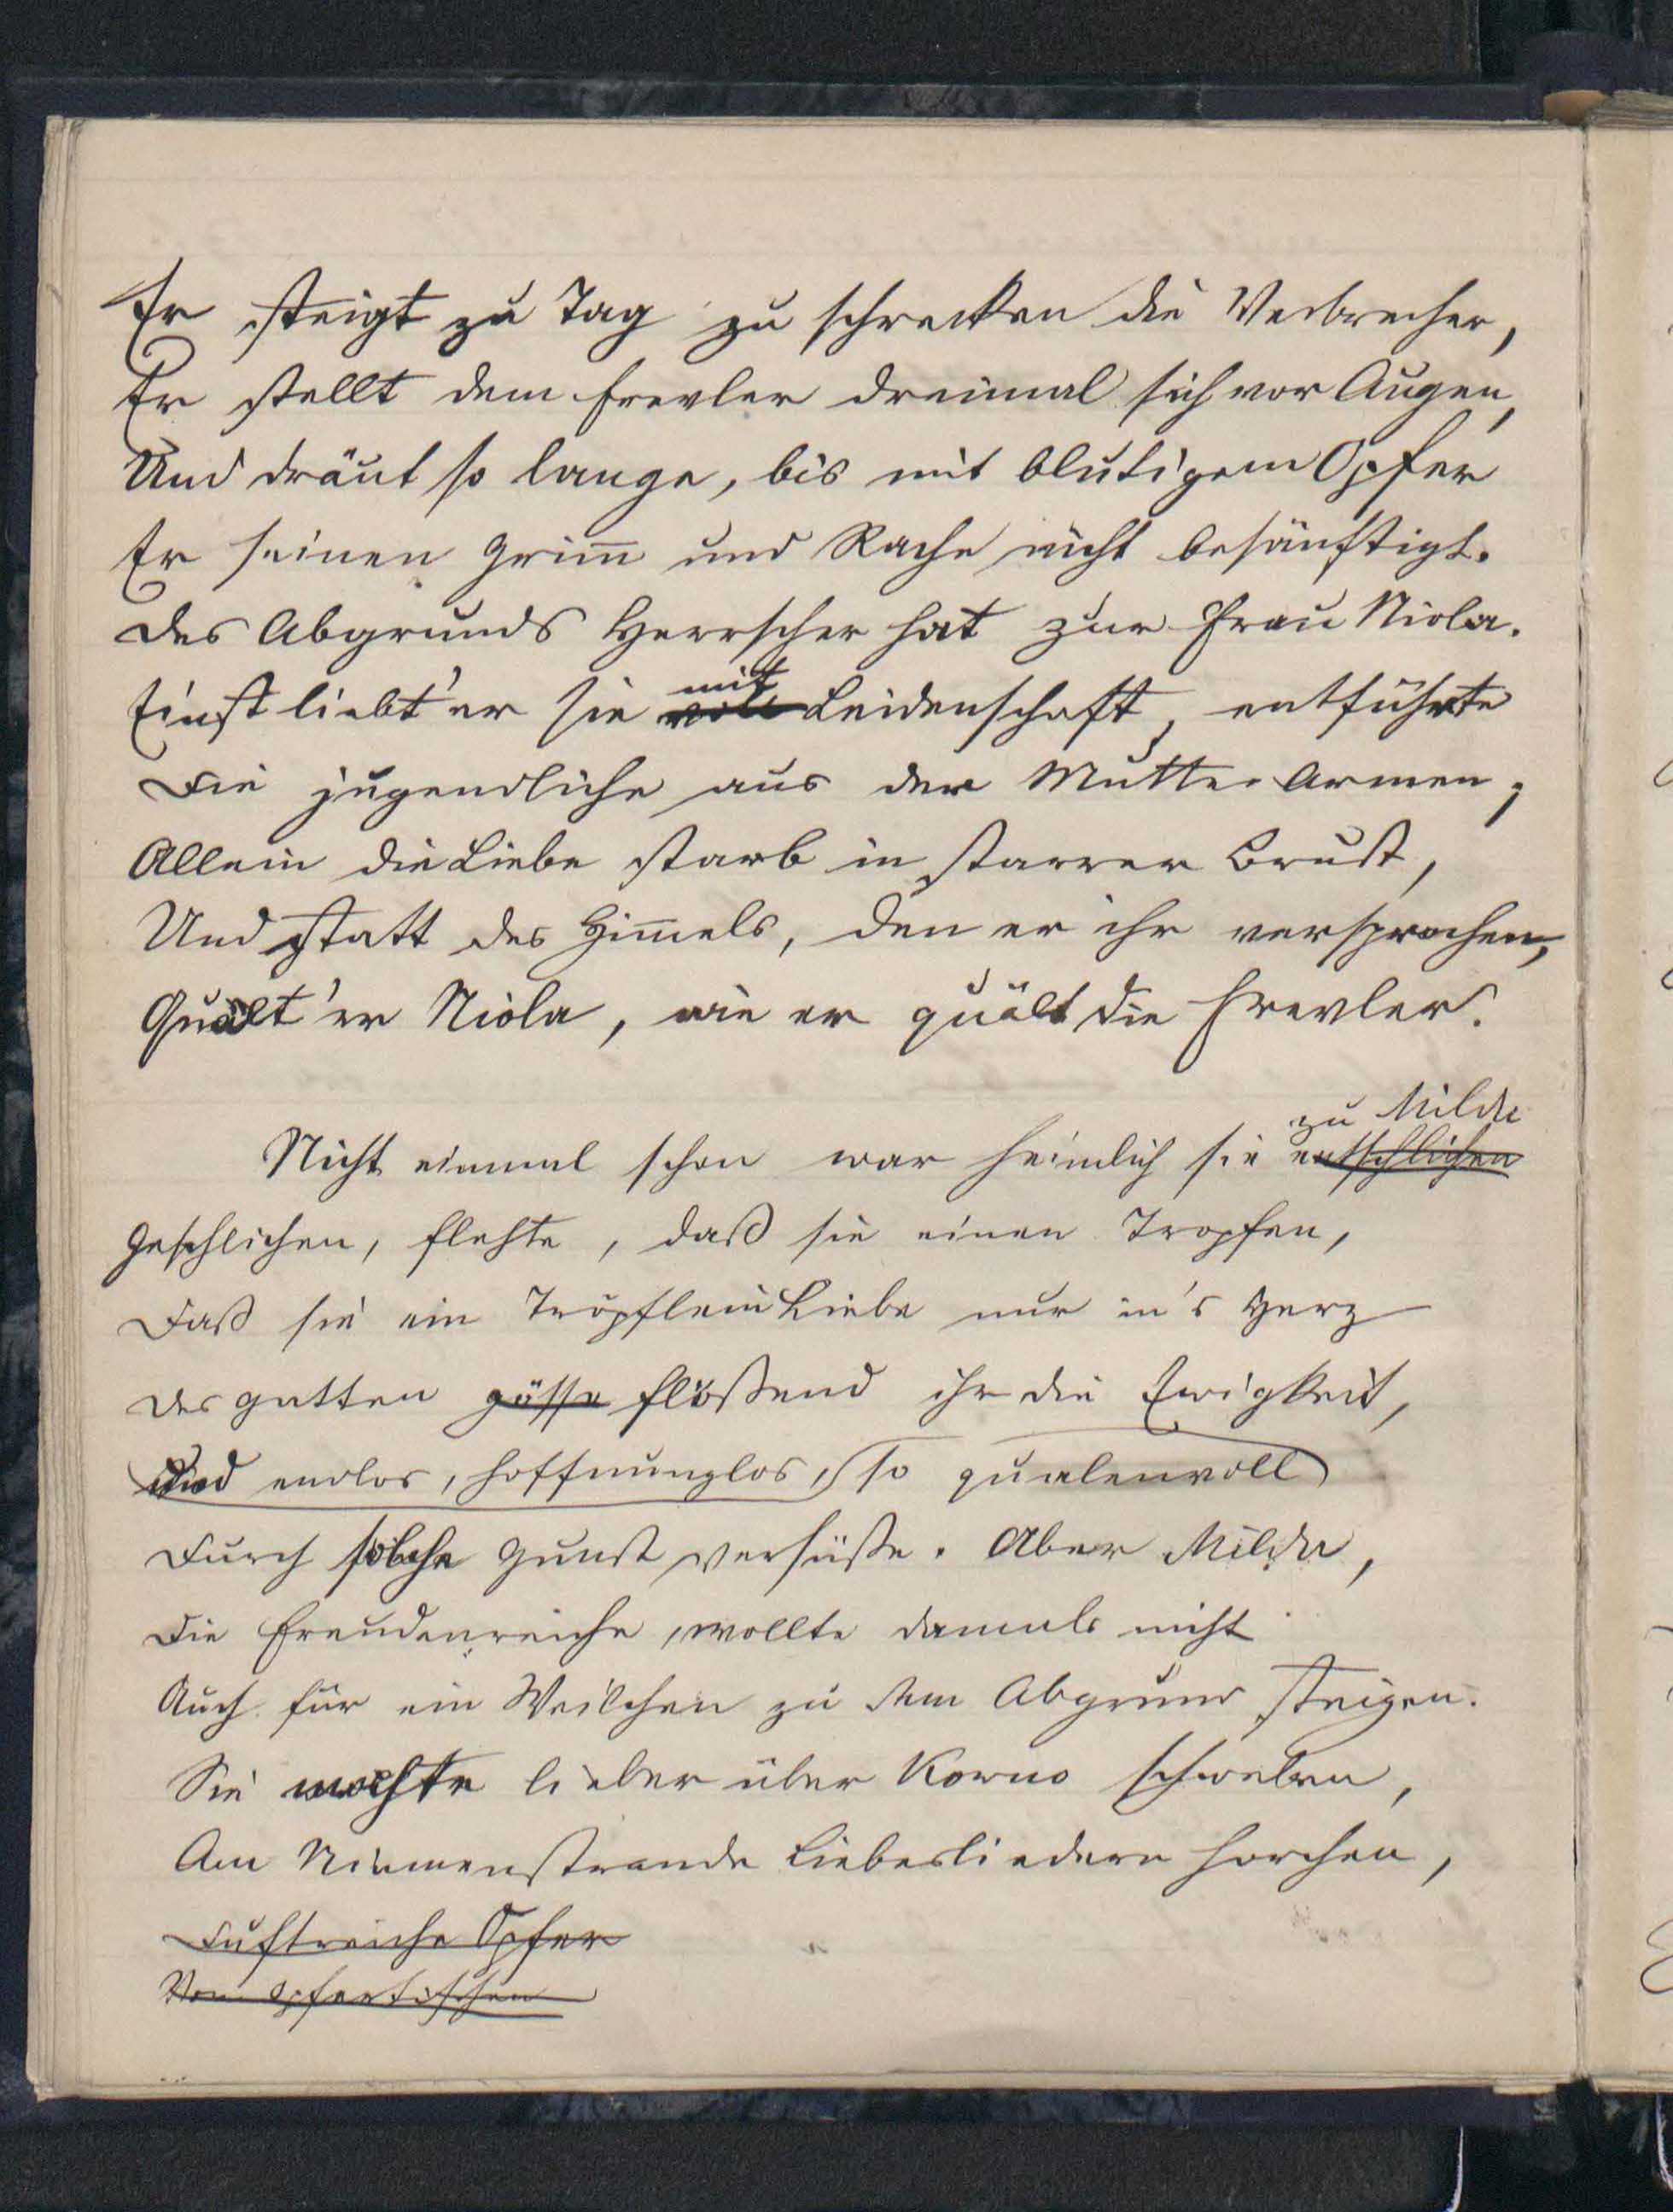 Er steigt zu Tag zu schrecken die Verbrecher,
Er stellt dem Frevler dreimal sich vor Augen,
Und dräut so lange, bis mit blutigem Opfer
Er seinen Grim̅ und Rache nicht besänftigt.
Des Abgrunds Herrscher hat zur Frau Niola.
mit
Einst liebt' er sie voll Leidenschaft, entführte
Die jugendliche aus der Mutter Armen;
Allein die Liebe starb in starrer Brust,
Und statt des Him̅els, den er ihr versprochen,
Quält' er Niola, wie er quält die Frevler.
zu Milda
Nicht einmal schon war heimlich sie entschlichen
Geschlichen, flehte, daß sie einen Tropfen,
Daß sie ein Tröpflein Liebe nur in's Herz
Des Gatten gösse flößend ihr die Ewigkeit,
Und endlos, hoffnunglos, so qualenvoll
Durch solche Gunst versüße. Aber Milda,
Die Freudenreiche, wollte damals nicht
Auch für ein Weilchen zu dem Abgrund steigen.
Sie mochte lieber über Kowno schweben,
Am Niemenstrande Liebesliedern horchen,
Duftreiche Opfer
Von Opfertischen